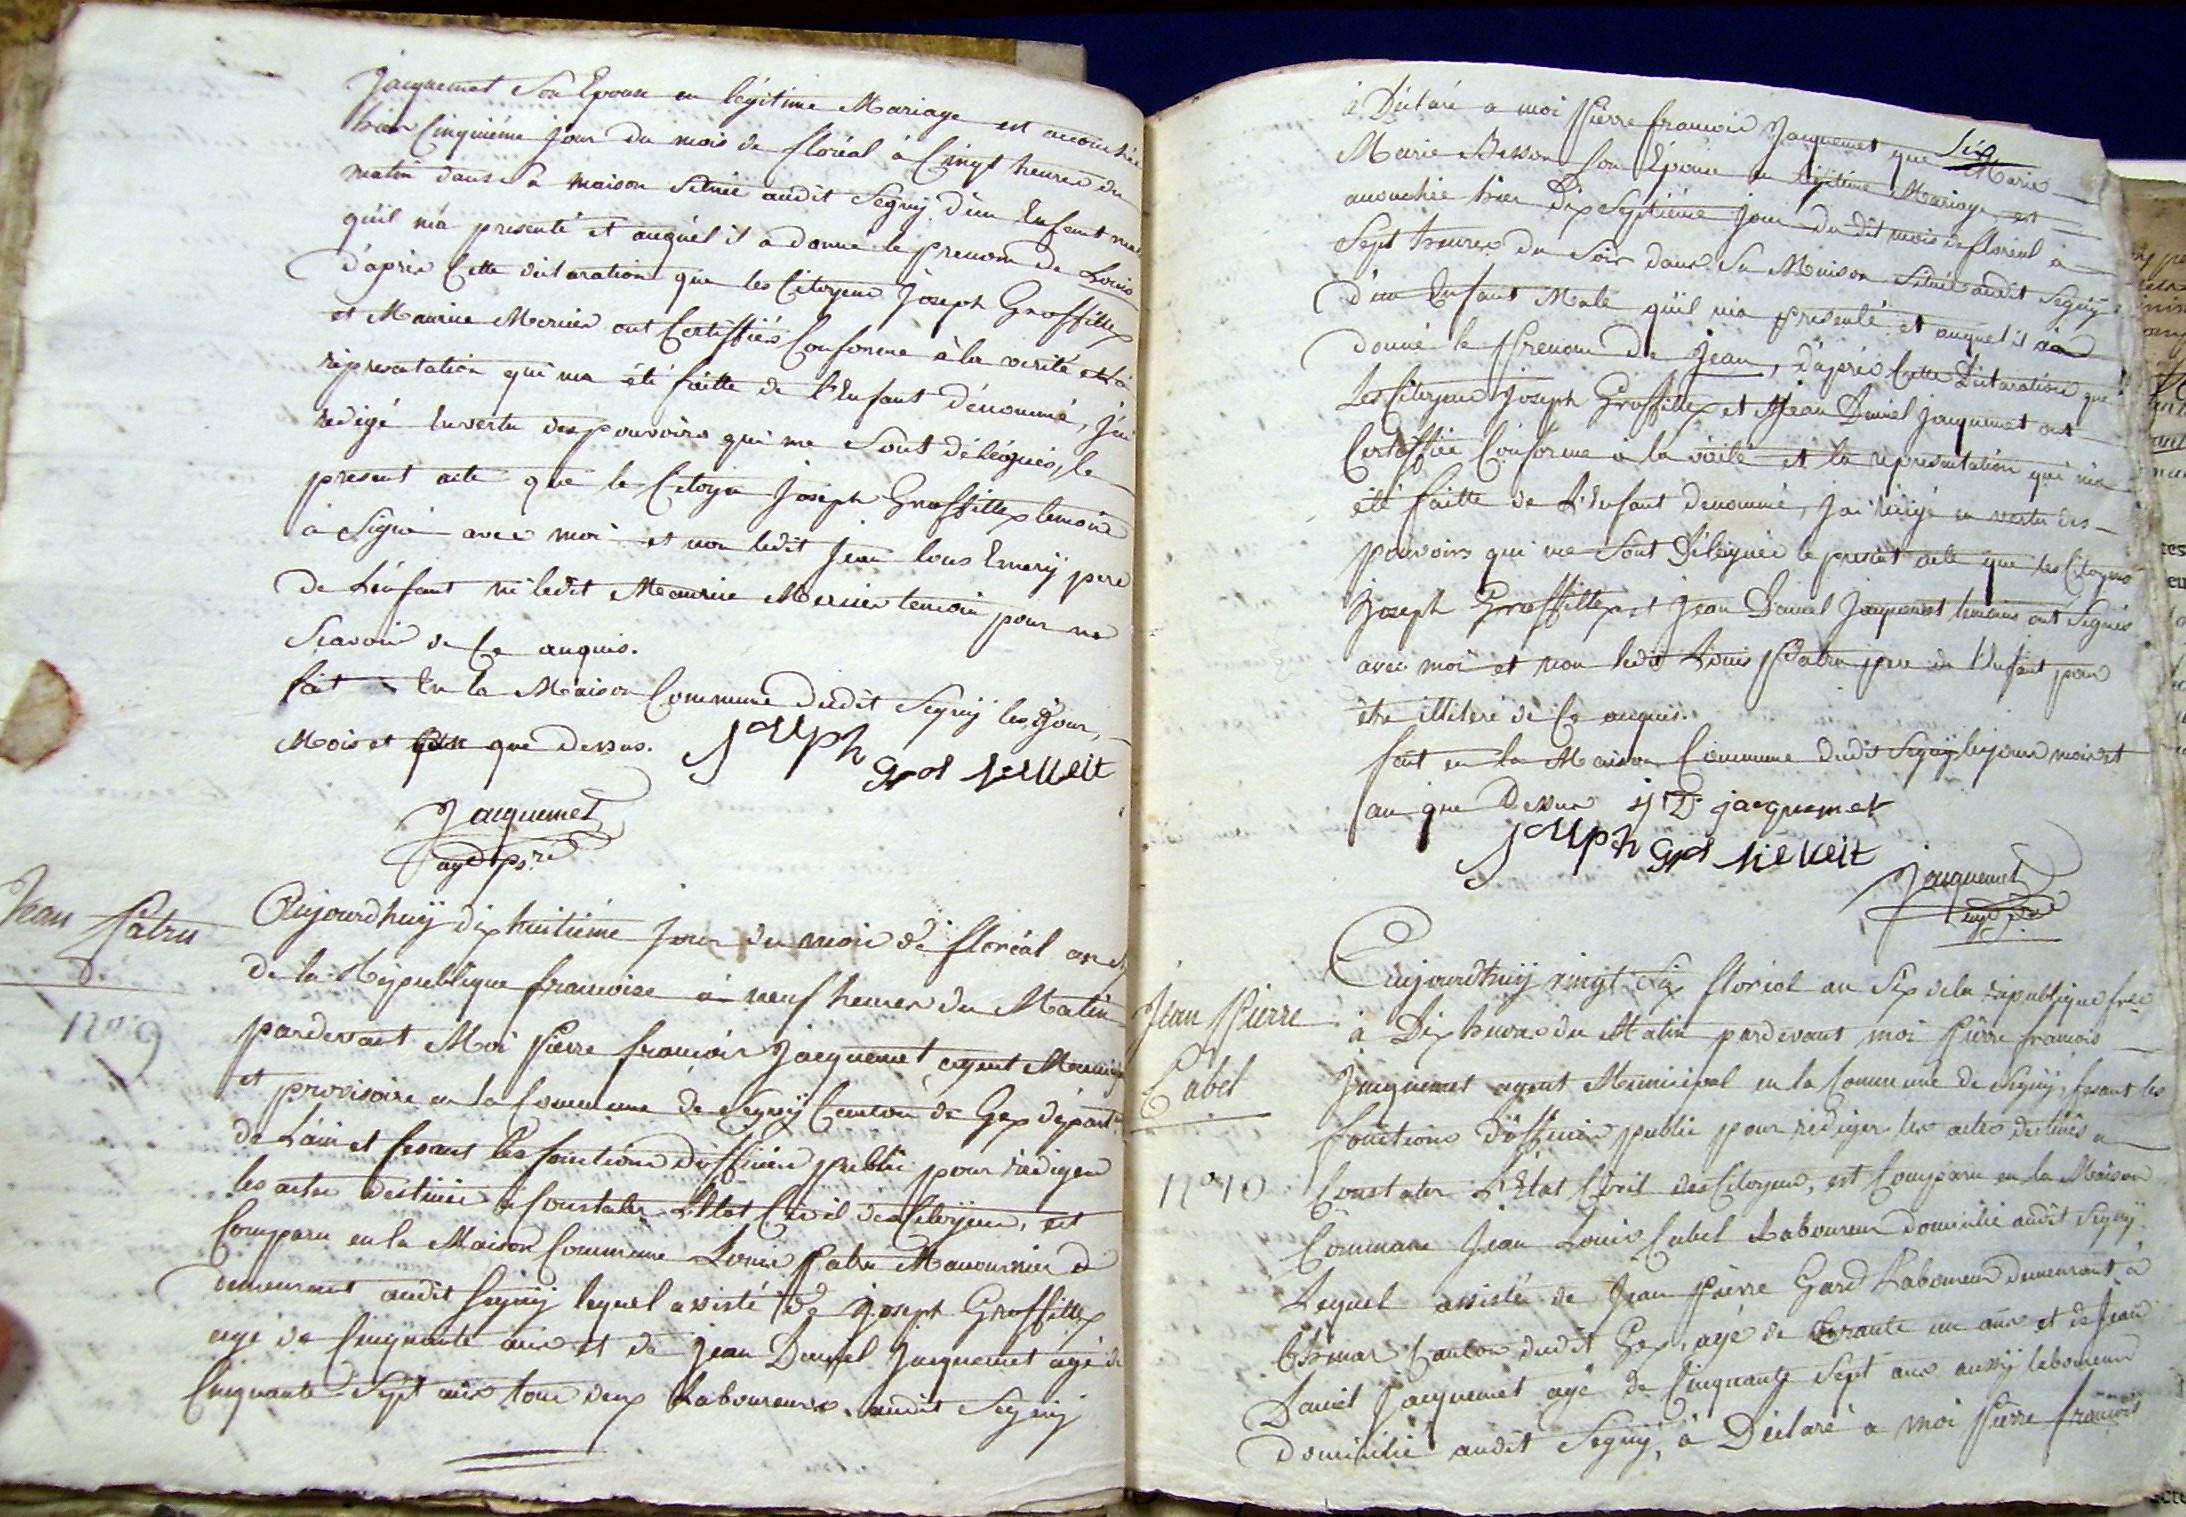 Jacquemet Son Epouse en légitime Mariage est accouchée
hier Cinquiéme jour du mois de floréal à Cinq heures du
matin dans Sa maison Située audit Segny d'un Enfant mal
quil m'a presenté et auquel il a donné le prenom de Louis
d'après Cette déclaration que les Citoyens Joseph Grosfillex
et Maurice Mernier ont Certiffiés Conforme à la verité et la
représentation qui ma été faitte de l'Enfant dénommé, J'ai
redigé Envertu des pouvoirs qui me Sont délégués, le
present acte que le Citoyen Joseph Grosfillex temoin
à Signé avec moi et non ledit Jean Louis Emery pere
de L'enfant ni ledit Maurice Mernier temoin pour ne
Scavoir de Ce anquis.
fait En la Maison Commune dudit Segny les Jour,
Mois et que Dessus. Joseph
Gros
Jacquemet
agt
Jean Patru
No. 9
Aujourdhuÿ dix huitiéme Jour du mois de floréal an
de la République francoise à neuf heures du Matin
pardevant Moi Pierre francois Jacquemet agent Municip
et provisoire en la Commune de Segnÿ Canton de Gex départ
de L'ain et fesant les fonctions d'officier public pour rédiger
les actes destinés à Constater L'Etat Civil des Citoÿens, est
Comparu en la Maison Commune Louis Patru Manouvrier
demeurant audit Segnÿ lequel assisté de Joseph Grosfillex
agé de Cinquante ans et de Jean Daniel Jacquemet agé de
Cinquante Sept ans tous deux Laboureurs audit Segnÿ
à Déclaré a moi Pierre francois Jacquemet que Marie
Marie Besson Son Épouse en légitime Mariage est
accouchée hier Dix Septiéme jour dudit mois de floreal à
Sept heures du Soir dans Sa Maison Située audit Segnÿ
d'un Enfant Male quil m'a presenté et auquel il a
donné le Prenom de Jean, d'après Cette Déclaration que
Les Citoyens Joseph Grosfillex et Jean Daniel Jacquemet ont
Certiffié Conforme à la vérité et la représentation qui m'a
été faitte de L'Enfant denommé, J'ai rédigé en vertu des
pouvoirs qui me Sont Délégués le present acte que les Citoyens
Joseph Grosfillex et Jean Daniel Jacquemet temoins ont Signés
avec moi et non ledit Louis Patru pere de l'Enfant pour
être illiteré de Ce anquis.
fait en la Maison Commune dudit Segnÿ les jour mois et
an que Dessus J D jacquemet
Joseph Gros
Jacquemet
agt
Jean Pierre
Cabel
No. 10
Aujourdhuÿ vingt Six floréal an Six de la république frse
à Dix heures du Matin pardevant moi Pierre francois
Jacquemet agent Municipal en la Commune de Segnÿ, fesant les
fonctions D'officier public pour rédiger les actes destinés a
Constater L'Etat Civil des Citoyens, est Comparu en la Maison
Commune Jean Louis Cabel Laboureur domicilié audit Segnÿ
Lequel assisté de Jean Pierre Gard Laboureur demeurant à
Canton dudit Gex, agé de un ans et de Jean
Daniel Jacquemet agé de Cinquante Sept ans aussy laboureur
domicilié audit Segnÿ, à Déclaré à moi Pierre francois